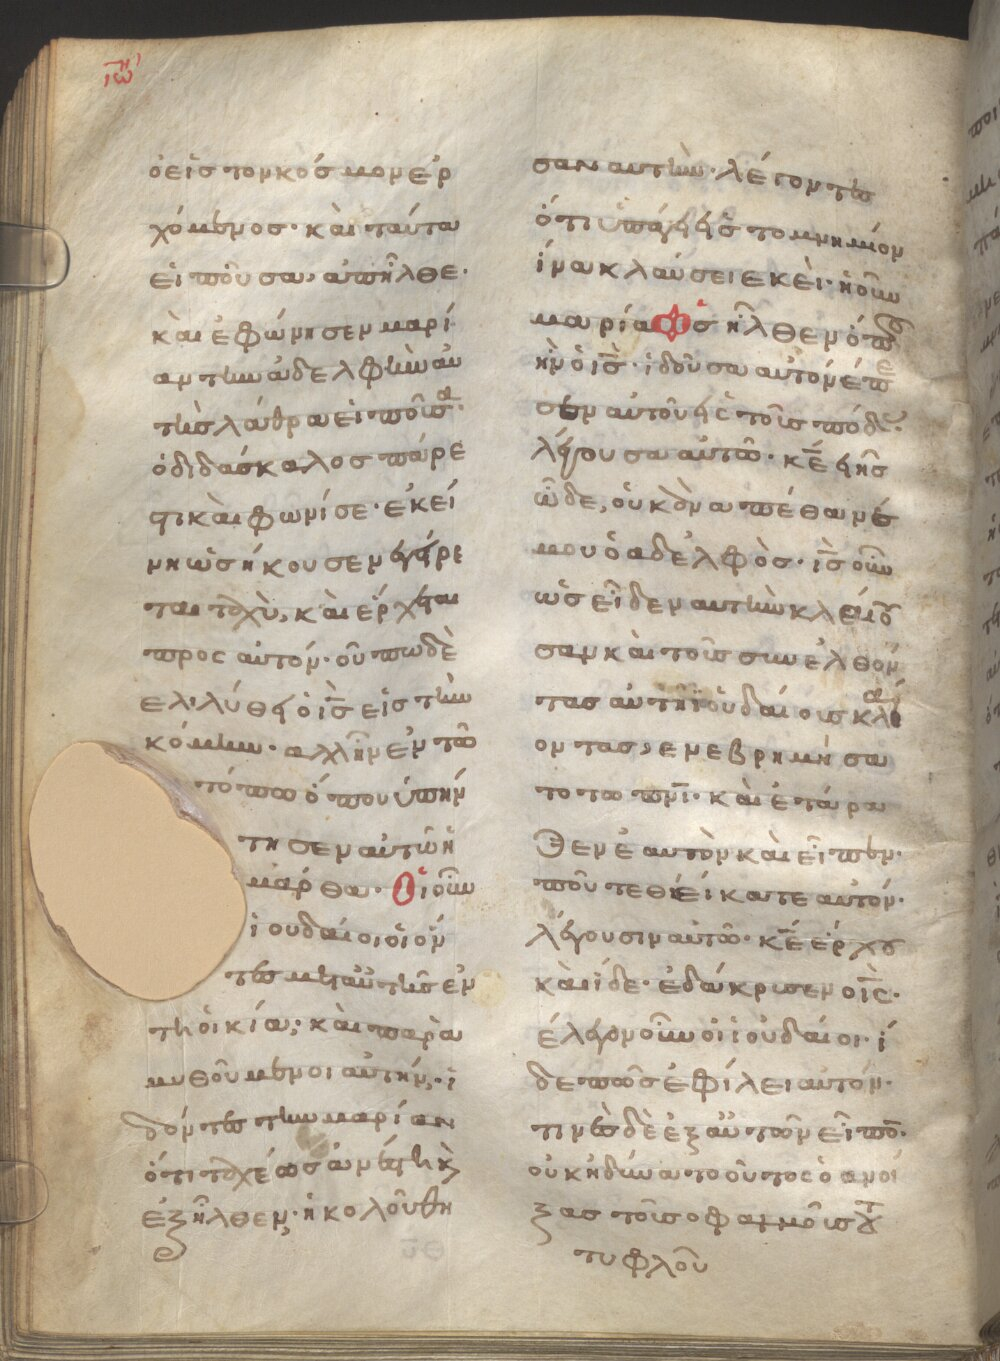 ὁ εἰς τὸν κόσμον ἐρ
χόμενος· καὶ ταῦτα
εἰποῦσα, ἀπῆλθε·
καὶ ἐφώνησεν μαρί
αν τὴν ἀδελφὴν αὐ
τῆς λάθρα εἰποῦσα·
ὁ διδάσκαλος πάρε
στι καὶ φωνῖ σε· ἐκεί
νη ὡς ἤκουσεν ἐγείρε
ται ταχὺ, καὶ ἔρχεται
προς αὐτόν· οὔπω δὲ
ἐληλύθει ὁ ι̅ς̅ εἰς τὴν
κόμην· ἀλλ ἦν ἐν τῶ
τόπω ὅπου ὑπήν
τησεν αὐτῶ ἡ
μάρθα· Οἱ οὖν
ἰουδαίοι οἱ ὄν
τες μεταὐτῆς ἐν
τῆ οἰκία, καὶ παρα
μυθοῦμενοι αὐτήν, ἰ
δόντες τὴν μαρίαν
ὅτι ταχέως ἀνέστη κ
ἐξῆλθεν, ἠκολοῦθη
σαν αὐτὴν· λέγοντες
ὅτι ὑπάγει εἰς το μνημίον
ἵνα κλαύσει ἐκεῖ· ἡ οὖν
μαρία ὡς ἦλθεν ὅπου
ἦν ὁ ι̅ς̅· ἰδοῦσα αὐτόν ἔπε
σεν αὐτοῦ εἰς τοὺς πόδας·
λέγουσα αὐτῶ· κ̅ε̅ εἰ ἦς
ὧδε, οὐκ ἂν ἀπέθανέ
μου ὁ ἀδελφὸς· ι̅ς̅ οὖν
ὡς εἶδεν αὐτὴν κλέου
σαν καὶ τοὺς συνελθόν
τας αὐτῆ ἰουδαίους κλαί
οντας, ἐνεβρημήσα
το τω π̅ν̅ι̅· καὶ ἐτάρα
ξεν ἑαυτὸν καὶ εἶπεν·
ποῦ τεθείκατε αὐτόν·
λέγουσιν αὐτῶ· κ̅ε̅ ἔρχου
καὶ ἴδε· ἐδάκρισεν ὁ ι̅ς̅·
ἔλεγον οὖν οἱ ἰουδαίοι· ἴ
δε πῶς ἐφίλει αὐτόν·
τινὲς δὲ ἐξ αὐτῶν εἶπον·
οὐκ ἠδύνατο οὗτος ὁ ἀνοί
ξας τοὺς οφαλμοὺς τοῦ
τυφλοῦ